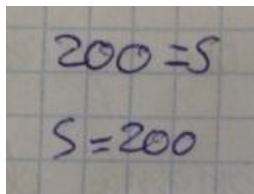 200 = S
S = 200